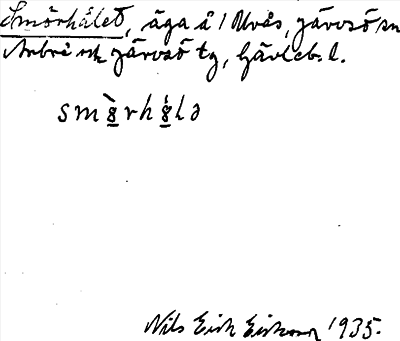 Smörhålet, äga å 1 Uvås, Järvsö sn
Arbrå och Järvsö tg, Gävleb. l.
sm8̲̀rh8̲́lə
Nils Erik Eriksson 1935.